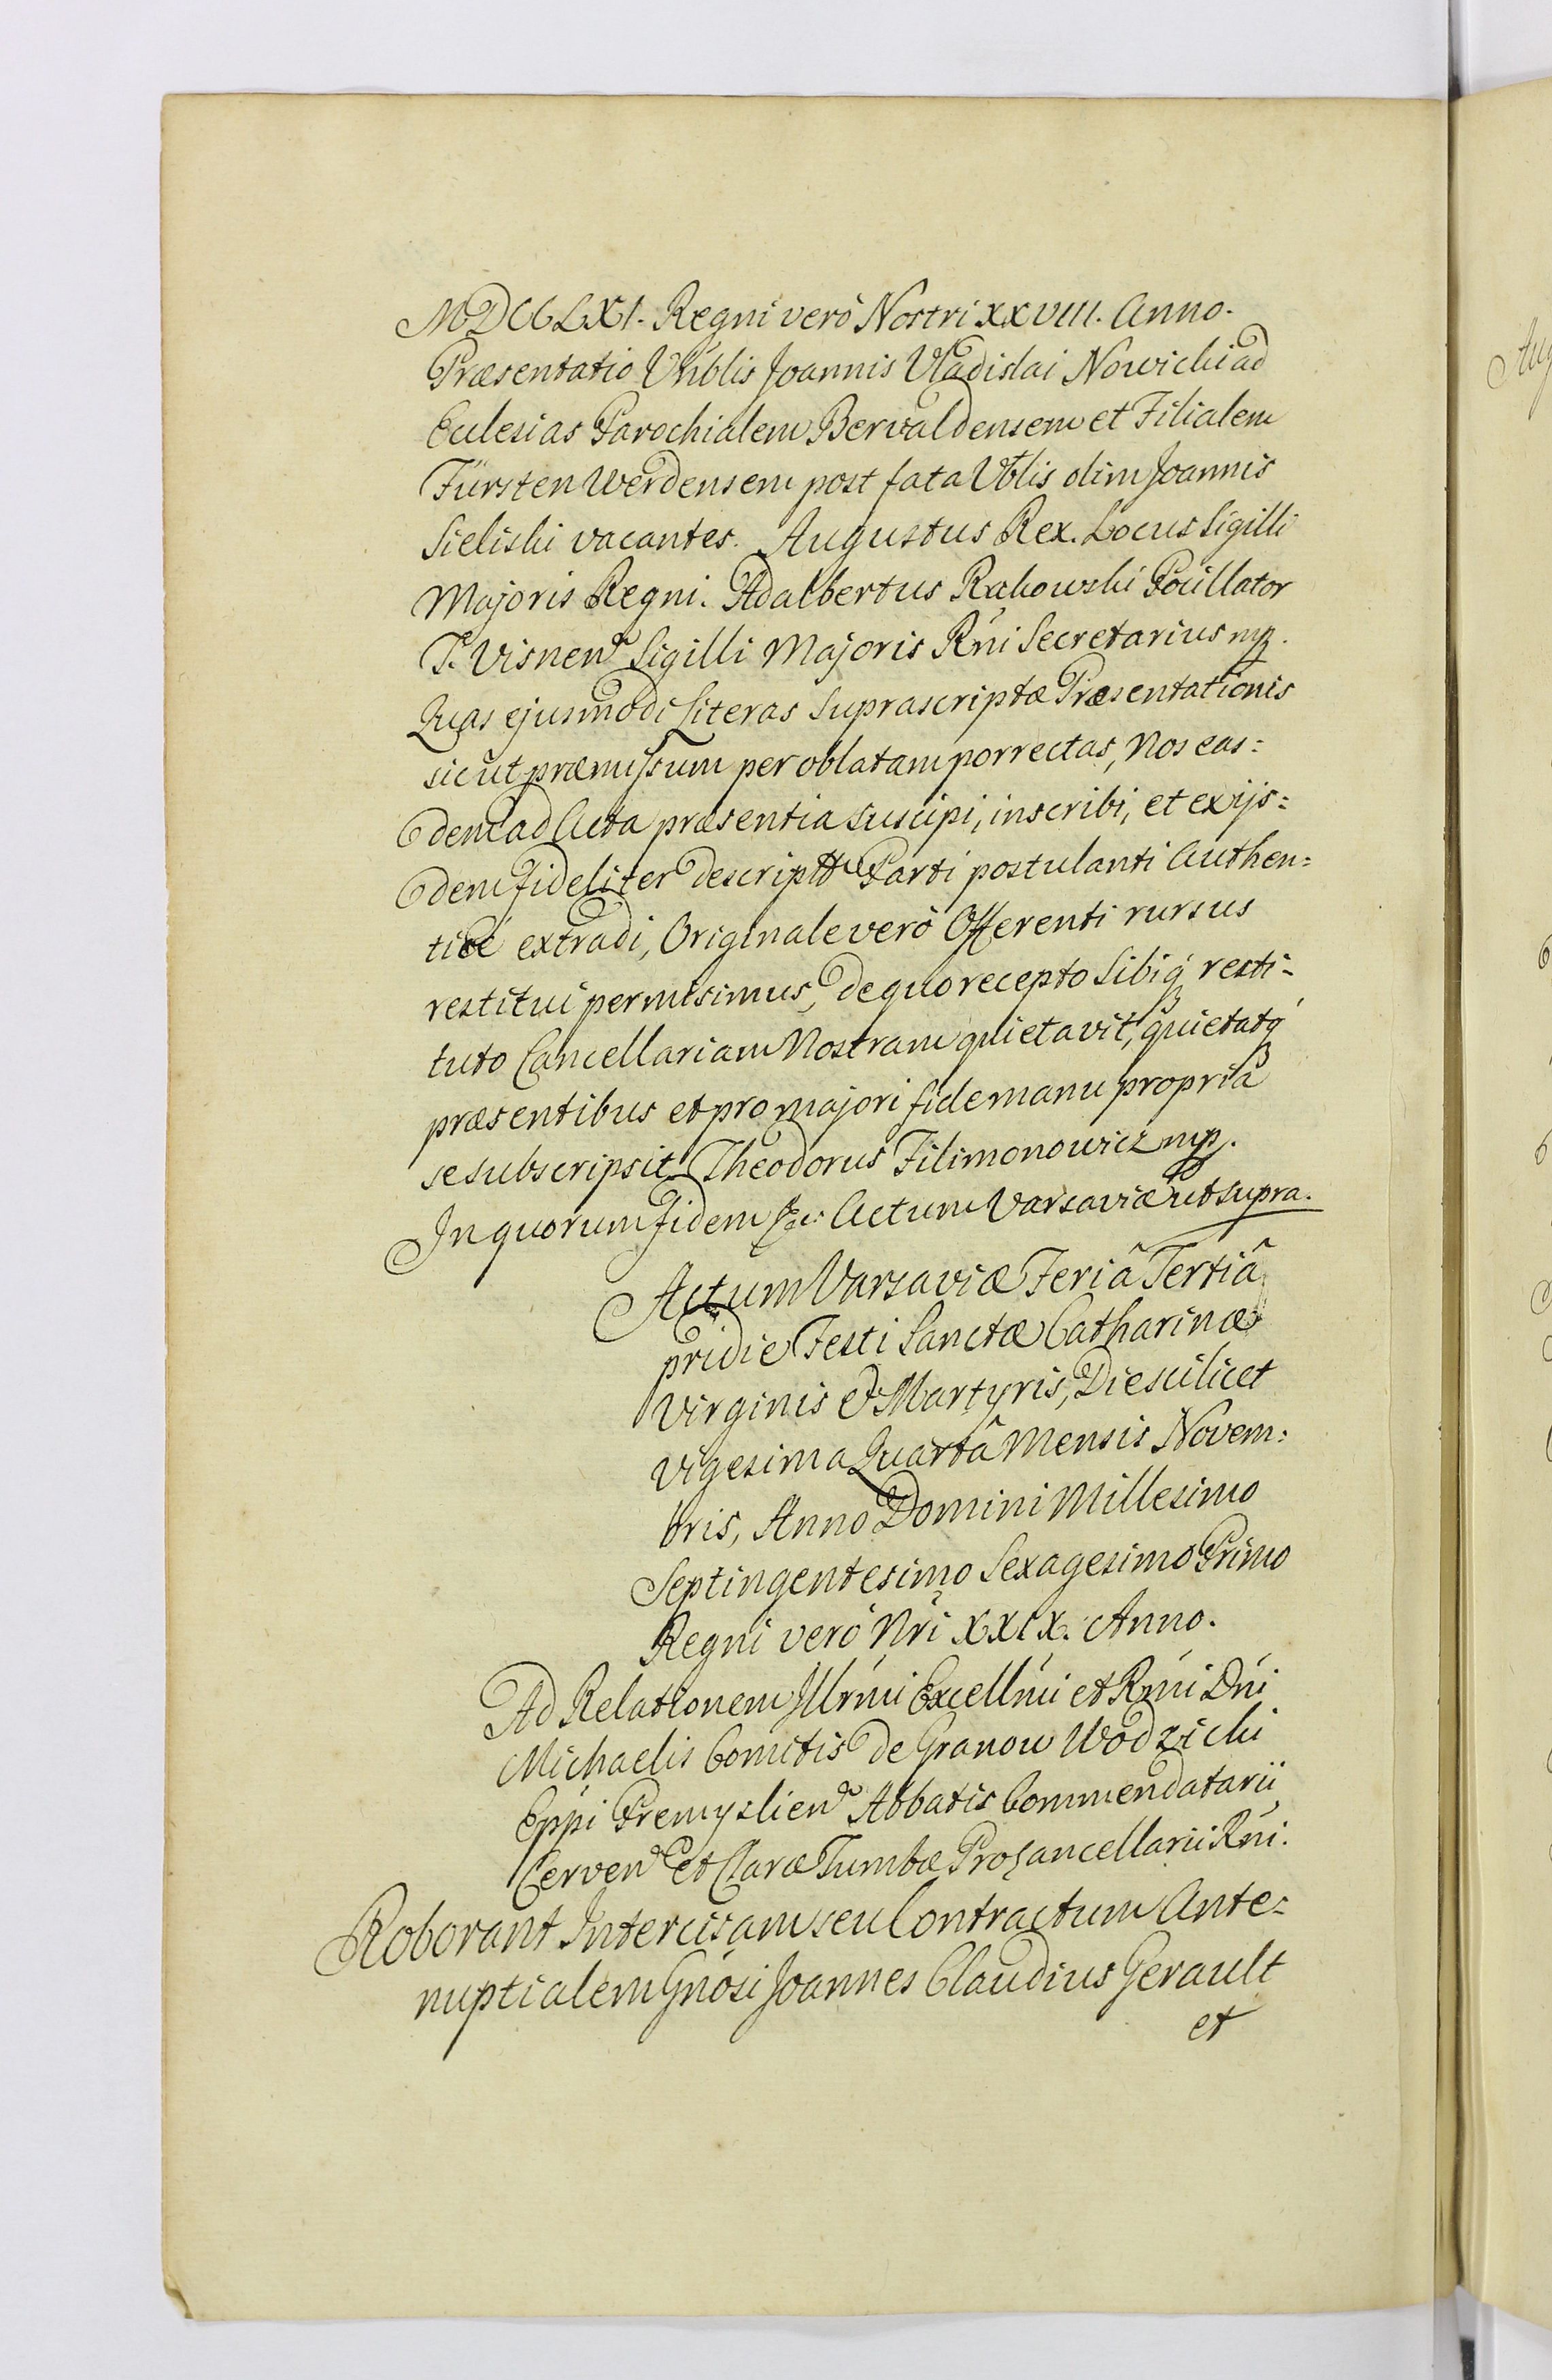 MDCCLXI. Regni verò Nostri XXVIII. Anno.
Præsentatio Vnblis Joannis Vladislai Nowicki ad
Ecclesias Parochialem Berwaldensem et Filialem
Fürstenwerdensem post fata Vblis olim Joannis
Sieliski vacantes. Augustus Rex. Locus Sigilli
Majoris Regni. Adalbertus Rakowski Pocillator
T. Visnen. Sigilli Majoris Rni Secretarius mp.
Quas ejusmodi Literas suprascriptæ Præsentationis
sicut præmissum per oblatam porrectas, Nos eas=
dem ad Acta præsentia suscipi, inscribi, et ex ijs=
dem fideliter descriptũ Parti postulanti Authen=
ticè extradi, Originale verò Offerenti rursus
restitui permisimus, de quo recepto Sibiq́ resti=
tuto Cancellariam Nostram quietavit, quietatq́
præsentibus et pro majori fide manu propriâ
se subscripsit. Theodorus Filimonowicz mp.
In quorum fidem &c: Actum Varsaviæ ut supra.
Actum Varsaviæ Feriâ Tertiâ
pridie Festi Sanctæ Catharinæ
Virginis et Martyris, Die scilicet
Vigesima Quartâ Mensis Novem=
bris, Anno Domini Millesimo
Septingentesimo Sexagesimo Primo
Regni verò Nri XXIX. Anno.
Ad Relationem Illrmi Excellmi et Rmi Dni
Michaelis Comitis de Granow Wodzicki
Eppi Premyslien. Abbatis Commendatarii
Cerven. et Claræ Tumbæ Procancellarii Rni.
Roborant Intercisam seu Contractum Ante=
nuptialem Gnosi Joannes Claudius Gerault
et
Aug